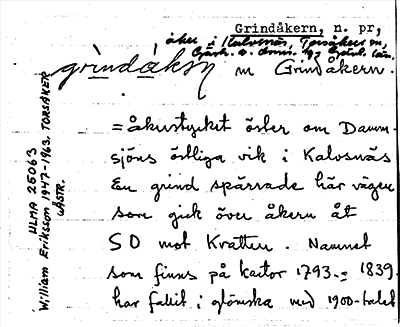 Grindåkern, n. pr,
åker i Kalvsnäs, Torsåkers sn,
Gästr. o. doms. hd Gävleb. län.
grindåkṣn m Grindåkern.
= åkerstycket öster om Damm-
sjöns östliga vik i Kalvsnäs
En grind spärrade här vägen
som gick över åkern åt
SO mot Kratten. Namnet
som finns på kartor 1793 = 1839
har fallit i glömska med 1900-talet
ULMA 25063
William Eriksson 1947-1963. TORSÅKER
GÄSTR.